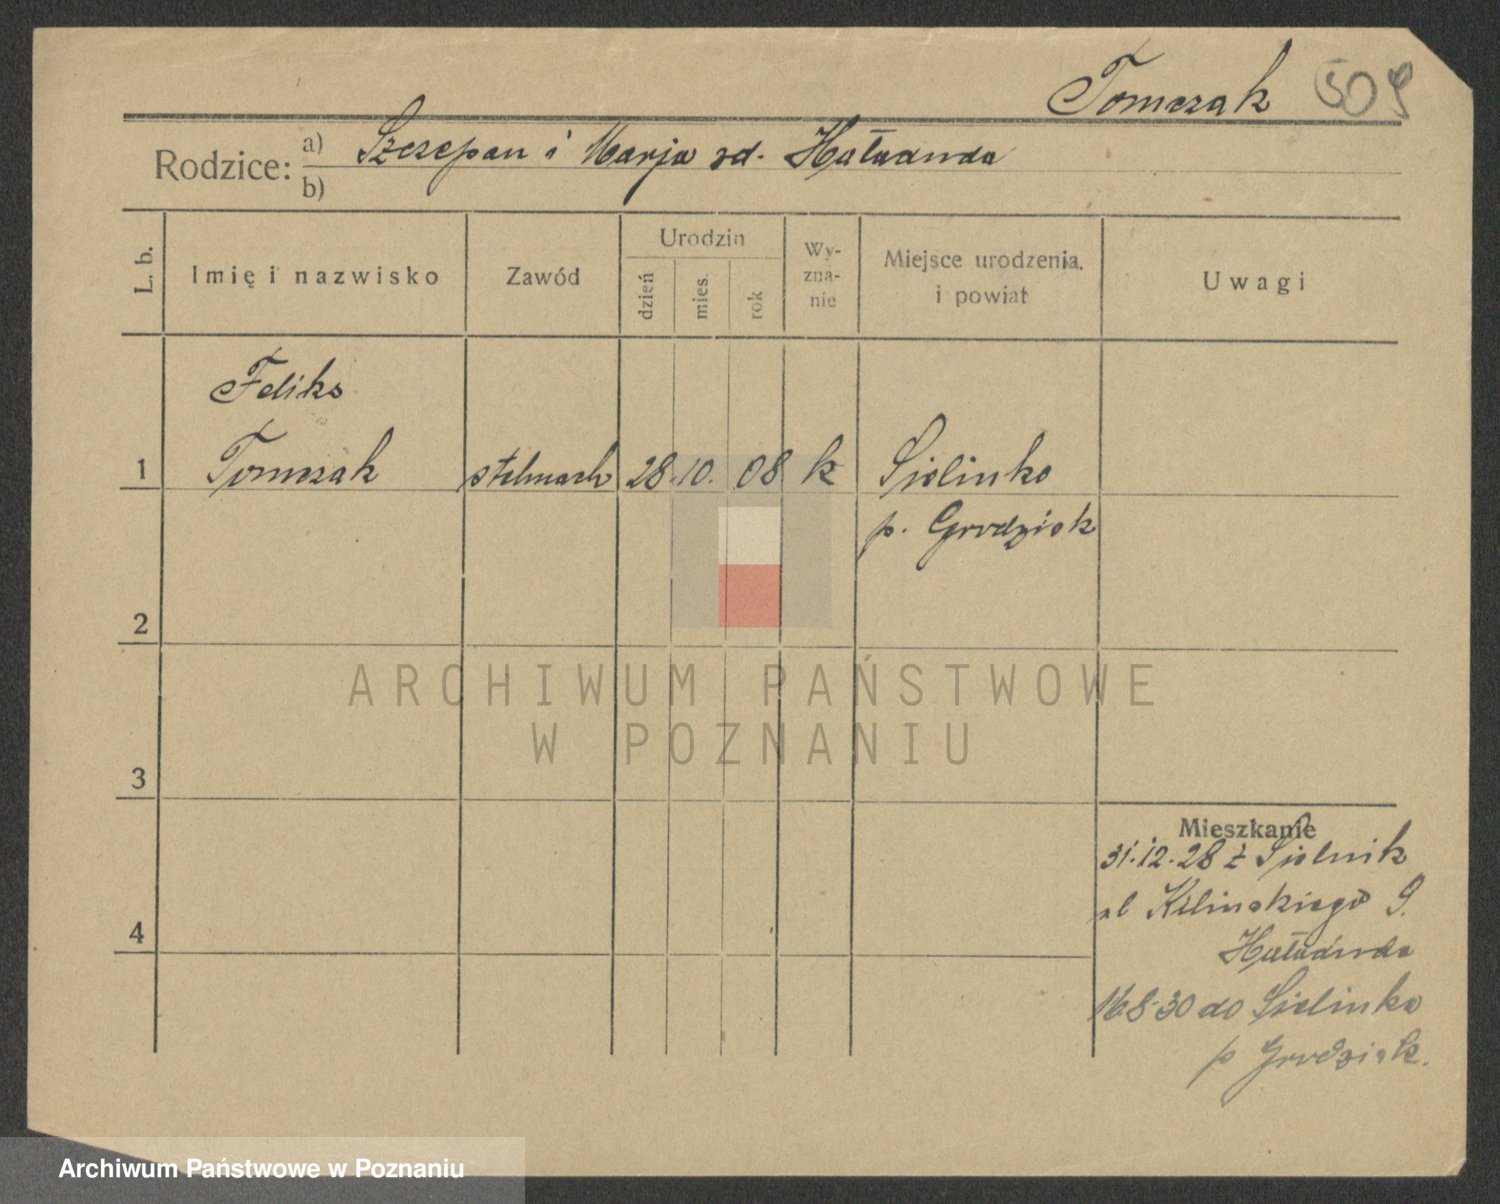 Tomczak 509
Rodzice: a) Szczepan i Marja zd. Haładuda
b)
L. b. Imię i nazwisko Zawód Urodzin dzień mies. rok Wy-zna-nie Miejsce urodzenia, i powiat Uwagi
Feliks
1 Tomczak stelmach 28. 10. 08 k Sielinko
p. Grodzisk
2
ARCHIWUM PAŃSTWOWE
W POZNANIU
3
Mieszkanie
31.12.28 z Sielink
ul Kilinskiego 9.
4
Haładuda
16.8.30 do Sielinko
p Grodzisk.
Archiwum Państwowe w Poznaniu